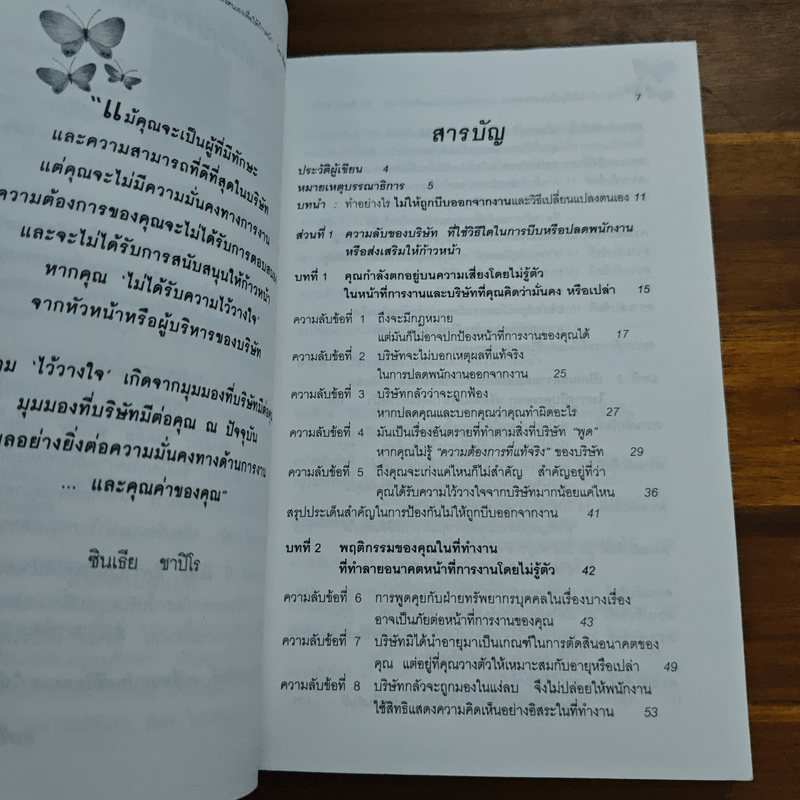 “แม้คุณจะเป็นผู้ที่มีทักษะ
และความสามารถที่ดีที่สุดในบริษัท
แต่คุณจะไม่มีความมั่นคงทางการงาน
ความต้องการของคุณจะไม่ได้รับการตอบสนอง
และจะไม่ได้รับการสนับสนุนให้ก้าวหน้า
หากคุณ ‘ไม่ได้รับความไว้วางใจ’
จากหัวหน้าหรือผู้บริหารของบริษัท
‘ไว้วางใจ’ เกิดจากมุมมองที่บริษัทมีต่อคุณ
มุมมองที่บริษัทมีต่อคุณ ณ ปัจจุบัน
อย่างยิ่งต่อความมั่นคงทางด้านการงาน
... และคุณค่าของคุณ”
ซินเธีย ชาปิโร
7
สารบัญ
ประวัติผู้เขียน 4
หมายเหตุบรรณาธิการ 5
บทนำ : ทำอย่างไร ไม่ให้ถูกบีบออกจากงานและวิธีเปลี่ยนแปลงตนเอง 11
ส่วนที่ 1 ความลับของบริษัท ที่ใช้วิธีใดในการบีบหรือปลดพนักงาน
หรือส่งเสริมให้ก้าวหน้า
บทที่ 1 คุณกำลังตกอยู่บนความเสี่ยงโดยไม่รู้ตัว
ในหน้าที่การงานและบริษัทที่คุณคิดว่ามั่นคง หรือเปล่า 15
ความลับข้อที่ 1 ถึงจะมีกฎหมาย
แต่มันก็ไม่อาจปกป้องหน้าที่การงานของคุณได้ 17
ความลับข้อที่ 2 บริษัทจะไม่บอกเหตุผลที่แท้จริง
ในการปลดพนักงานออกจากงาน 25
ความลับข้อที่ 3 บริษัทกลัวว่าจะถูกฟ้อง
หากปลดคุณและบอกคุณว่าคุณทำผิดอะไร 27
ความลับข้อที่ 4 มันเป็นเรื่องอันตรายที่ทำตามสิ่งที่บริษัท “พูด”
หากคุณไม่รู้ “ความต้องการที่แท้จริง” ของบริษัท 29
ความลับข้อที่ 5 ถึงคุณจะเก่งแค่ไหนก็ไม่สำคัญ สำคัญอยู่ที่ว่า
คุณได้รับความไว้วางใจจากบริษัทมากน้อยแค่ไหน 36
สรุปประเด็นสำคัญในการป้องกันไม่ให้ถูกบีบออกจากงาน 41
บทที่ 2 พฤติกรรมของคุณในที่ทำงาน
ที่ทำลายอนาคตหน้าที่การงานโดยไม่รู้ตัว 42
ความลับข้อที่ 6 การพูดคุยกับฝ่ายทรัพยากรบุคคลในเรื่องบางเรื่อง
อาจเป็นภัยต่อหน้าที่การงานของคุณ 43
ความลับข้อที่ 7 บริษัทมิได้นำอายุมาเป็นเกณฑ์ในการตัดสินอนาคตของ
คุณ แต่อยู่ที่คุณวางตัวให้เหมาะสมกับอายุหรือเปล่า 49
ความลับข้อที่ 8 บริษัทกลัวจะถูกมองในแง่ลบ จึงไม่ปล่อยให้พนักงาน
ใช้สิทธิแสดงความคิดเห็นอย่างอิสระในที่ทำงาน 53